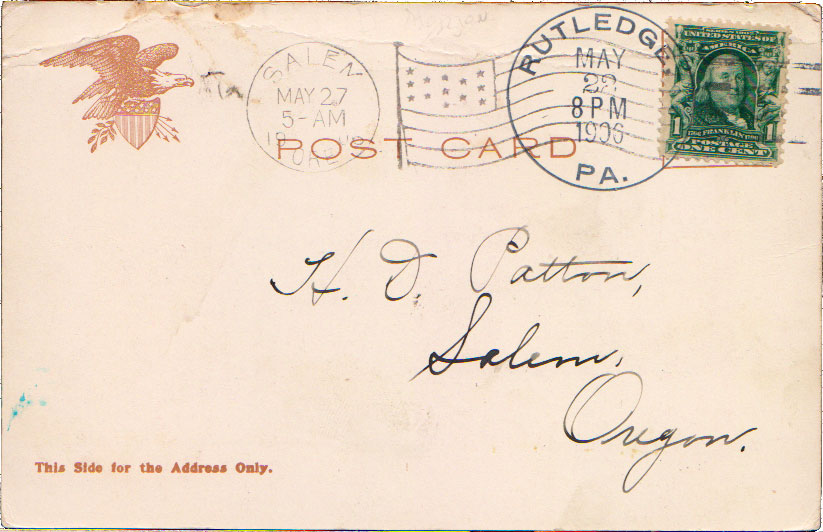 SALEM
MAY 27
5-AM
RUTLEDGE,
MAY
22
8 PM
1906
PA.
UNITED STATES OF
AMERICA
FRANKLIN
1 POSTAGE 1
ONE CENT
POST CARD
H. D. Patton,
Salem,
Oregon.
This Side for the Address Only.